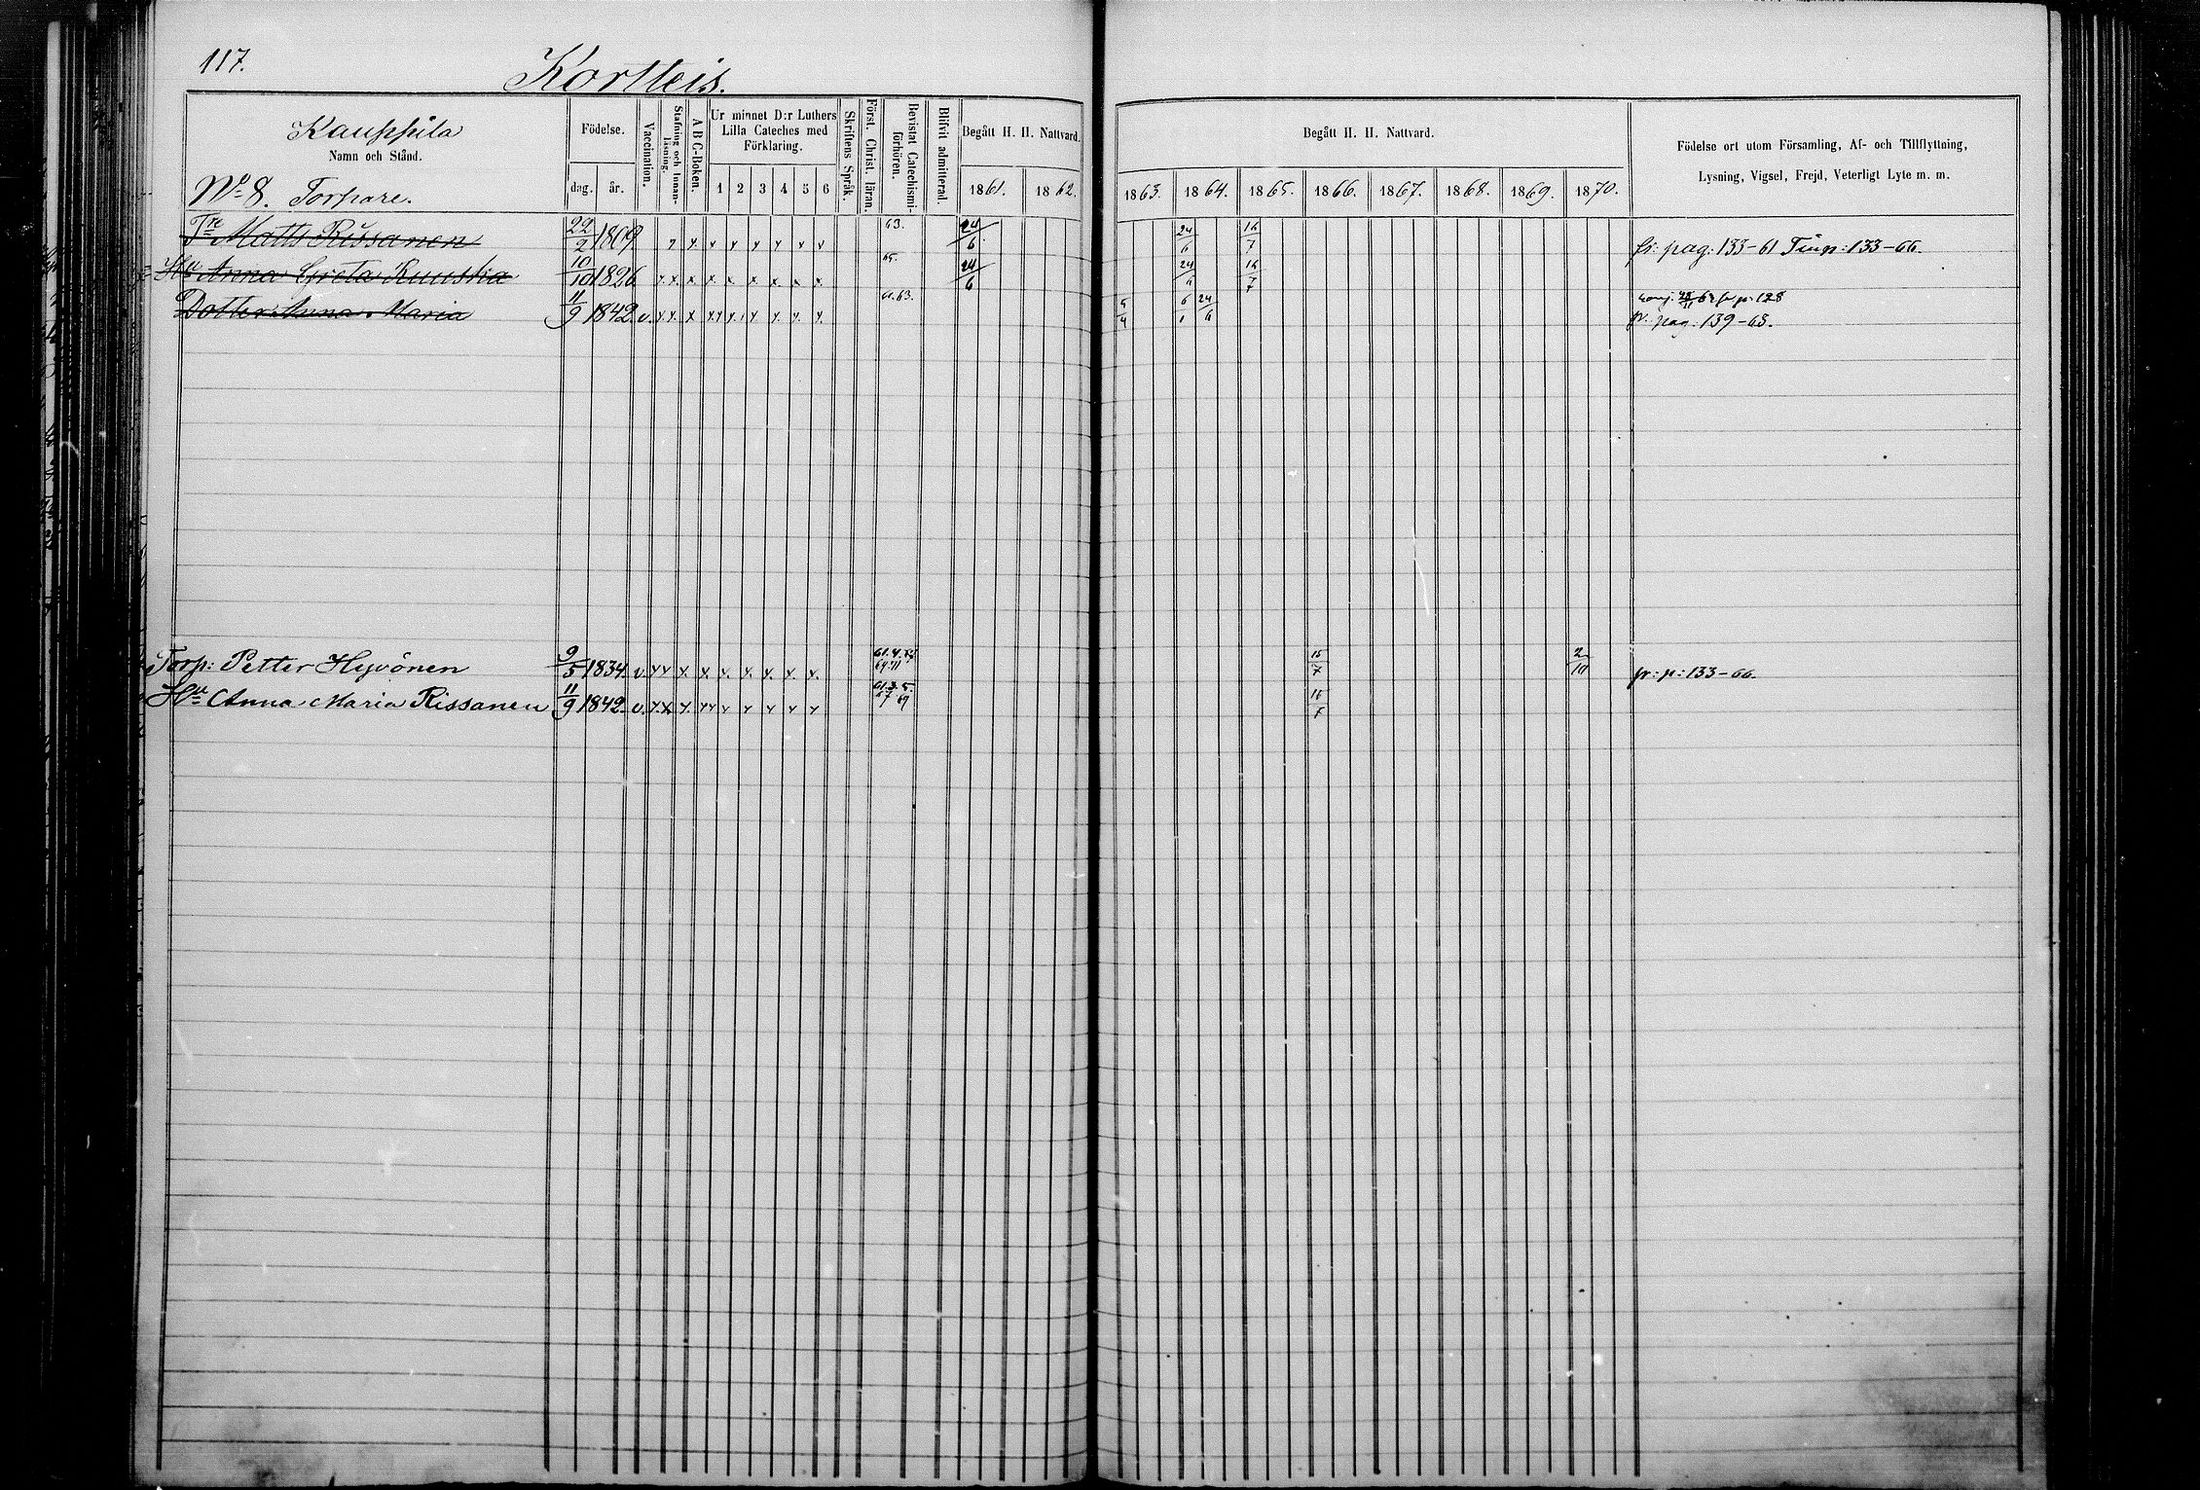 117.
Kortteis.
Kauppila
Namn och Stånd.
No 8. Torpare.
Födelse.
dag. år.
Vaccination.
Stafning och Innan-läsning.
A B C-Boken.
Ur minnet D:r Luthers
Lilla Cateches med
Förklaring.
1 2 3 4 5 6
Skriftens Språk.
Först. Christ. läran.
Bevistat Catechismi-förhören.
Blifvit admitterad.
Begått H. H. Nattvard.
1861. 1862.
Begått H. H. Nattvard.
1863. 1864. 1865. 1866. 1867. 1868. 1869. 1870.
Födelse ort utom Församling, Af- och Tillflyttning,
Lysning, Vigsel, Frejd, Veterligt Lyte m. m.
Matts Rissanen 22/2 1809. 63. 24/6 24/6 16/7 fr: pag: 133-61 133-66.
Hu Anna Greta Ruuska 10/10 1826 65. 24/6 24/6 16/7
Dotter Anna Maria 11/9 1842. v. 61.63. 24/6 p: 128
fr: pag: 139-63.
Torp: Petter Hyvönen 9/5 1834. v. 15/7 2/10 fr: p: 133-66.
Hu Anna Maria Rissanen 11/9 1842. v. 15/7